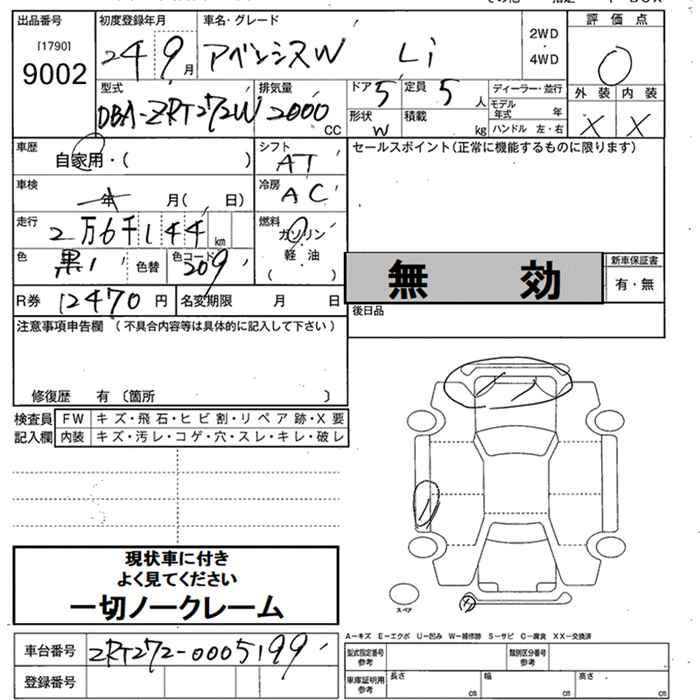 出品番号 初度登録年月 車名・グレード 評価点
[1790]
9002
24 9月 アベンシスW Li
2WD
4WD
0
型式 排気量 ドア 定員 ディーラー・並行 外装 内装
DBA-ZRT272W 2000cc 5 5人
モデル年式 年
形状 W 積載 kg ハンドル 左・右
X X
車歴 自家用・( )
シフト AT
セールスポイント(正常に機能するものに限ります)
車検 年 月( 日)
冷房 AC
走行 2万6千144km
燃料 ガソリン
軽油
( )
色 黒 色替 色コード 209
無効
新車保証書
有・無
R券 12470円 名変期限 月 日
後日品
注意事項申告欄 (不具合内容等は具体的に記入して下さい)
修復歴 有 〔箇所 〕
検査員 FW キズ・飛石・ヒビ割・リペア跡・X要
記入欄 内装 キズ・汚レ・コゲ・穴・スレ・キレ・破レ
現状車に付き
よく見てください
一切ノークレーム
スペア
車台番号 ZRT272-0005199
登録番号
A−キズ E−エクボ U−凹み W−補修跡 S−サビ C−腐食 XX−交換済
型式指定番号 参考 類別区分番号 参考
車庫証明用 参考 長さ cm 幅 cm 高さ cm